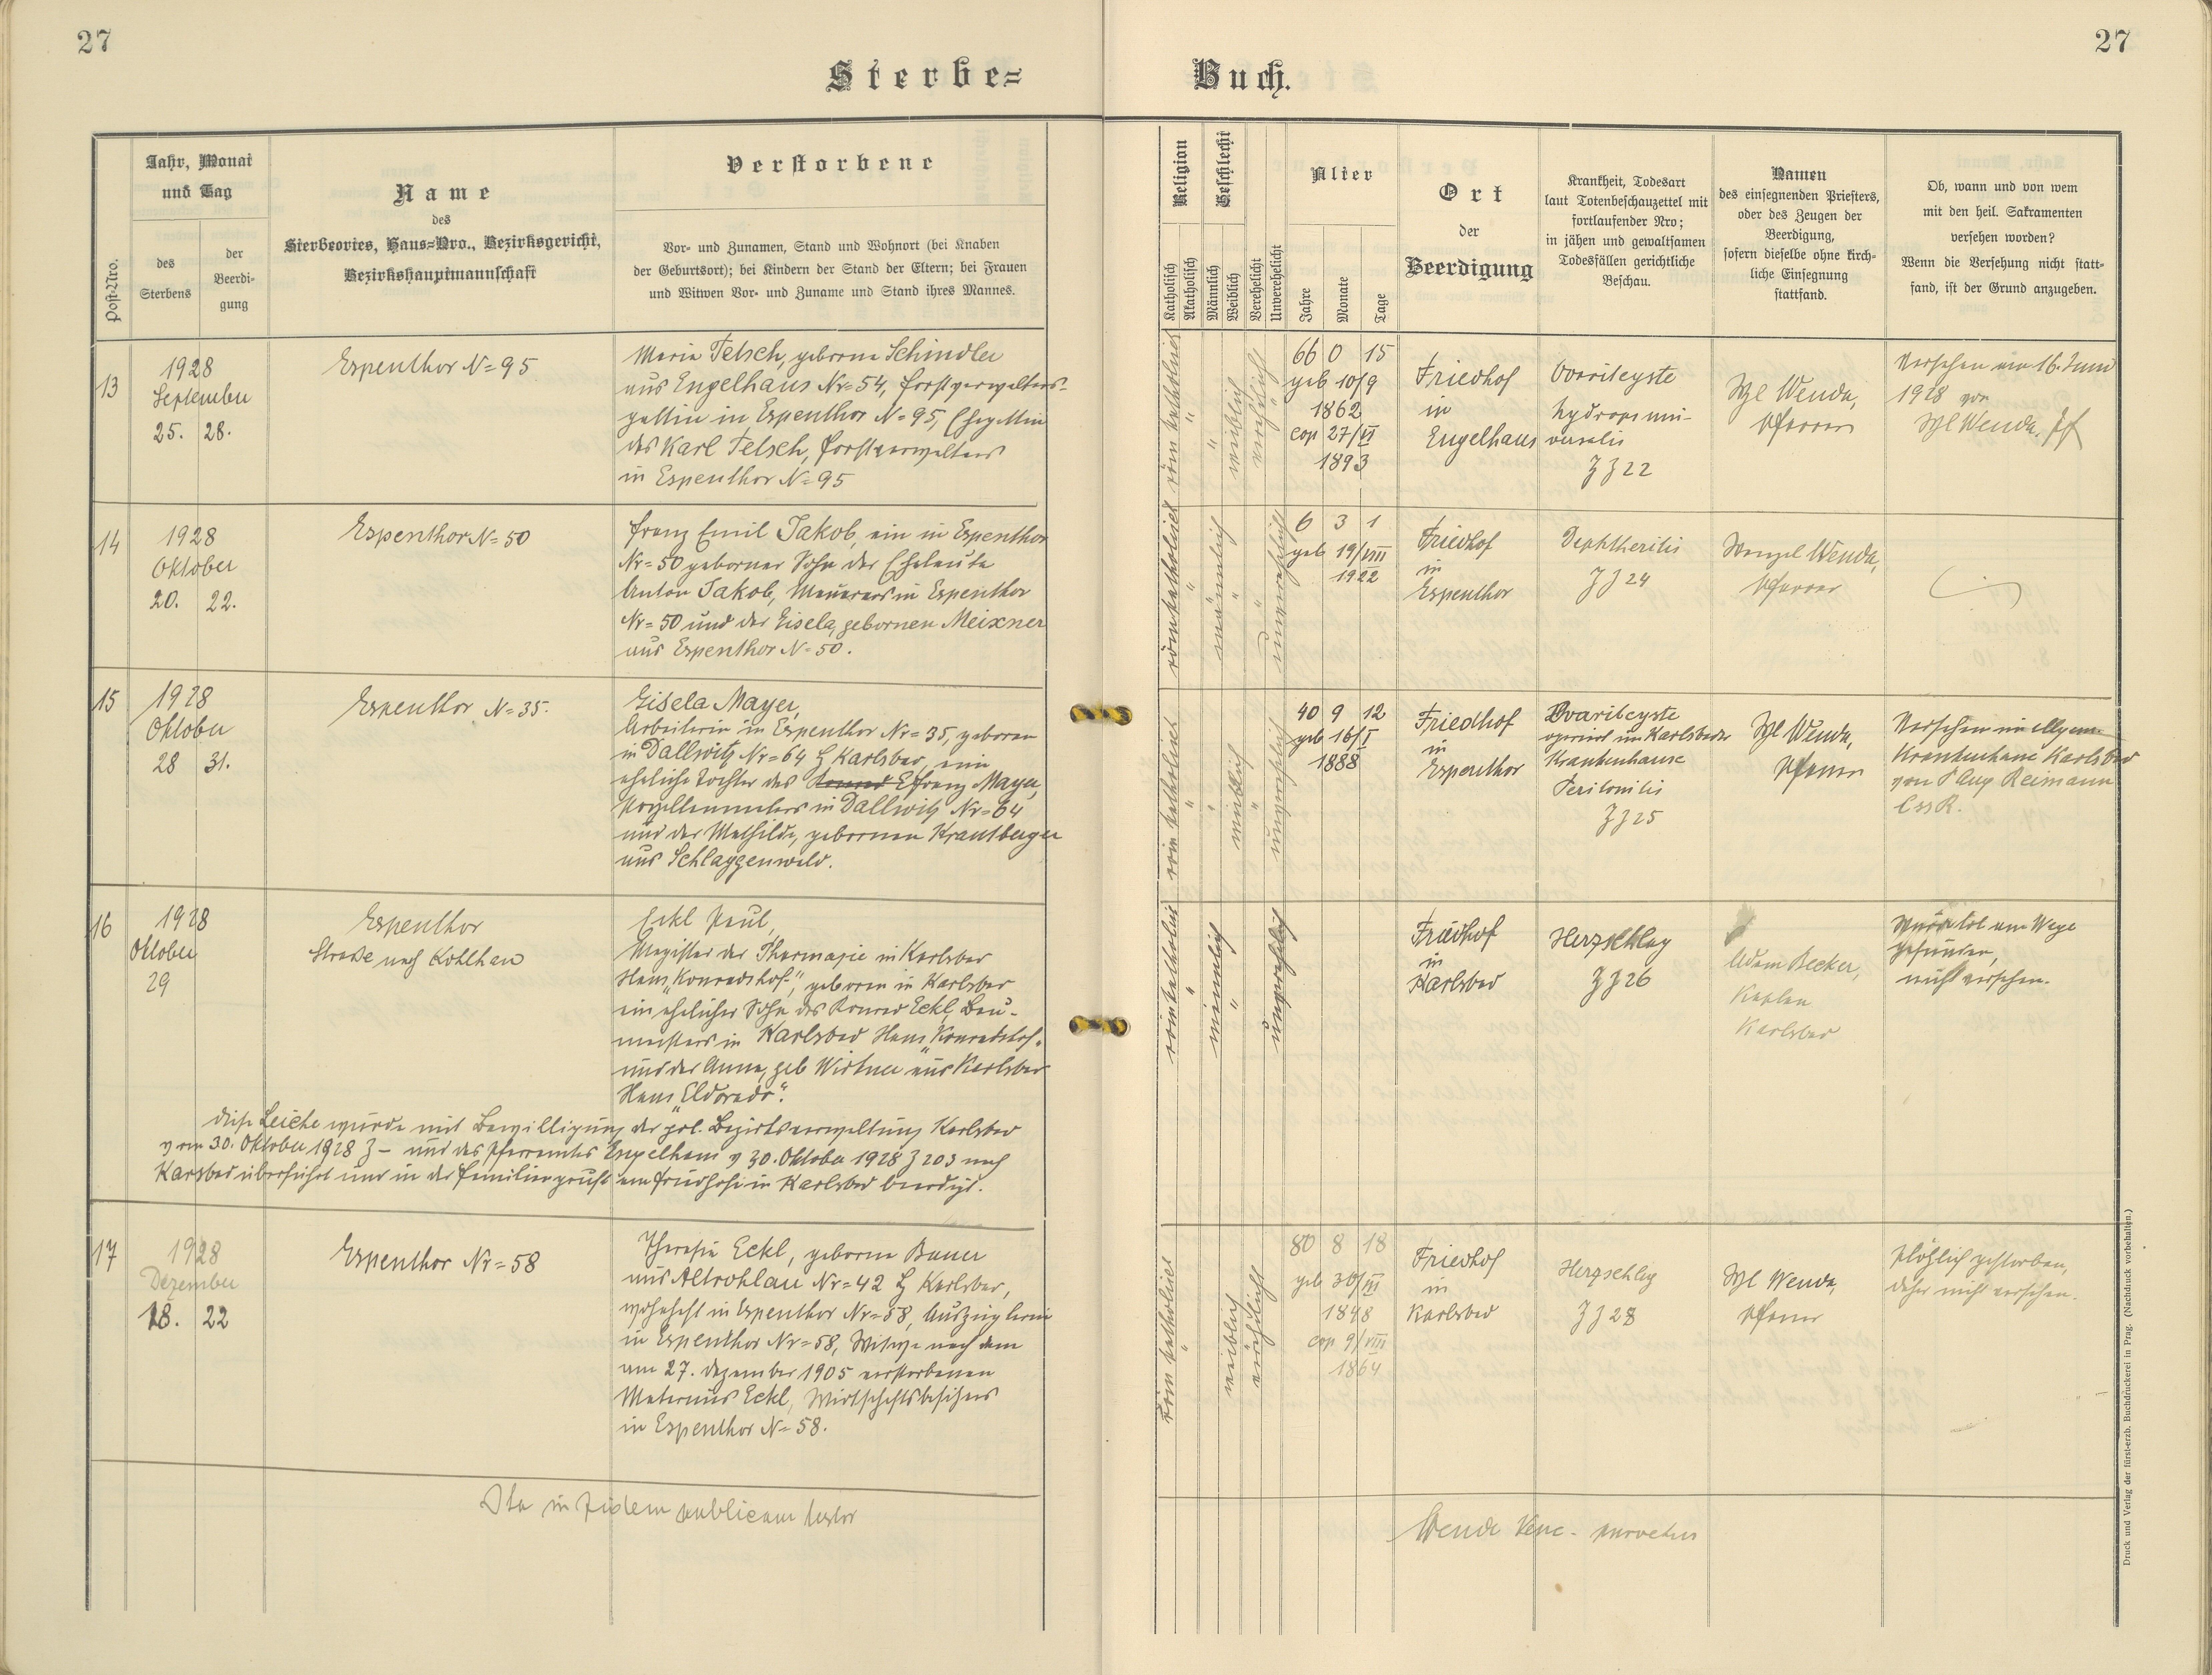 27
27
Sterbe=
Buch.
Post-Nro.
Jahr, Monat
und Tag
des
Sterbens
der
Beerdi-
gung
Name
des
Sterbeortes, Haus=Nro., Bezirksgericht,
Bezirkshauptmannschaft
Verstorbene
Vor- und Zunamen, Stand und Wohnort (bei Knaben
der Geburtsort); bei Kindern der Stand der Eltern; bei Frauen
und Witwen Vor- und Zuname und Stand ihres Mannes.
Religion
Katholisch
Akatholisch
Geschlecht
Männlich
Weiblich
Verehelicht
Unverehelicht
Alter
Jahre
Monate
Tage
Ort
der
Beerdigung
Krankheit, Todesart
laut Totenbeschauzettel mit
fortlaufender Nro;
in jähen und gewaltsamen
Todesfällen gerichtliche
Beschau.
Namen
des einsegnenden Priesters,
oder des Zeugen der
Beerdigung,
sofern dieselbe ohne kirch-
liche Einsegnung
stattfand.
Ob, wann und von wem
mit den heil. Sakramenten
versehen worden?
Wenn die Versehung nicht statt-
fand, ist der Grund anzugeben.
13
1928
September
25. 28.
Espenthor N=95
Maria Telsch, geborne Schindler
aus Engelhaus Nr=54, Forstverwalters-
gattin in Espenthor N=95, Ehegattin
des Karl Telsch, Forstverwalters
in Espenthor N=95
röm katholisch
"
"
weiblich
verehelicht
66 0 15
geb 10/9
1862
cop 27/VI
1893
Friedhof
in
Engelhaus
Ovarilcyste
hydrops uni-
versalis
ZJ 22
Wzl Wenda,
Pfarrer
Versehen am 16. Juni
1928 von
Wzl Wenda, Pf
14
1928
Oktober
20. 22.
Espenthor N=50
Franz Emil Jakob, ein in Espenthor
Nr=50 geborner Sohn der Eheleute
Anton Jakob, Maurers in Espenthor
Nr=50 und der Gisela, gebornen Meixner
aus Espenthor N=50.
röm katholisch
"
männlich
"
"
unverehelicht
6 3 1
geb 19/VIII
1922
Friedhof
in
Espenthor
Dephtheritis
ZJ 24
Wenzel Wenda,
Pfarrer
15
1928
Oktober
28 31.
Espenthor N=35.
Gisela Mayer,
Arbeiterin in Espenthor Nr=35, geboren
in Dallwitz Nr=64 Karlsbad, eine
eheliche Tochter des Franz Mayer,
Porzellanmalers in Dallwitz Nr=64
und der Mathilde, gebornen Krautberger
aus Schlaggenwald.
röm katholisch
"
"
weiblich
"
unverehelicht
40 9 12
geb 16/I
1888
Friedhof
in
Espenthor
Ovarilcyste
operiert im Karlsbader
Krankenhause
Peritonitis
ZJ 25
Wzl Wenda,
Pfarrer
Versehen im allgem.
Krankenhaus Karlsbad
von P Aug Reimann
CssR.
16
1928
Oktober
29
Espenthor
Straße nach Kohlhau
Eckl Paul,
Magister der Pharmazie in Karlsbad
Haus "Konradshof", geboren in Karlsbad
ein ehelicher Sohn des Konrad Eckl, Bau-
meisters in Karlsbad Haus "Konradshof"
und der Anna, geb Wirtner aus Karlsbad
Haus "Eldorado".
Diese Leiche wurde mit Bewilligung der pol. Bezirksverwaltung Karlsbad
vom 30. Oktober 1928 Z – und des Pfarramtes Engelhaus v 30. Oktober 1928 Z 203 nach
Karlsbad überführt und in der Familiengruft am Friedhofe in Karlsbad beerdigt.
röm katholisch
"
männlich
"
unverehelicht
Friedhof
in
Karlsbad
Herzschlag
ZJ 26
Adam Becker,
Kaplan
Karlsbad
Wurde tot am Wege
gefunden,
nicht versehen.
17
1928
Dezember
18. 22
Espenthor Nr=58
Theresia Eckl, geborne Bauer
aus Altrohlau Nr=42 Karlsbad,
wohnhaft in Espenthor Nr=58, Auszüglerin
in Espenthor Nr=58, Witwe nach dem
am 27. Dezember 1905 verstorbenen
Maternus Eckl, Wirtschaftsbesitzers
in Espenthor N=58.
röm katholisch
"
weiblich
verehelicht
80 8 18
geb 30/III
1848
cop 9/VIII
1864
Friedhof
in
Karlsbad
Herzschlag
ZJ 28
Wzl Wenda,
Pfarrer
Plötzlich gestorben,
daher nicht versehen.
Ita in fidem publicam testor
Wenda Venc. parochus
Druck und Verlag der fürst-erzb. Buchdruckerei in Prag. (Nachdruck vorbehalten.)